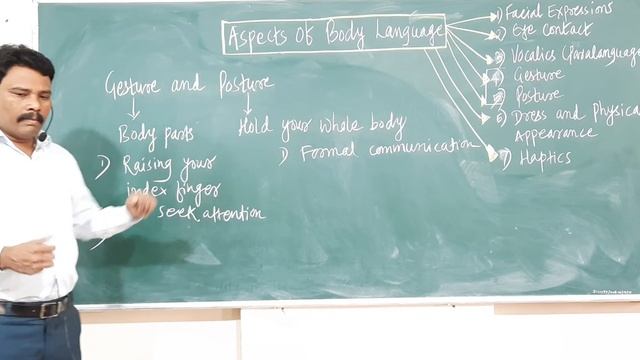 Aspects Of Body Language
1) Facial Expressions
2) Eye contact
3) Vocalics (Paralanguage
4) Gesture
5) Posture
6) Dress and Physical
Appearance
7) Haptics
Gesture and Posture
Body parts
Hold your whole body
1) Raising your
index finger
seek attention
1) Formal communication